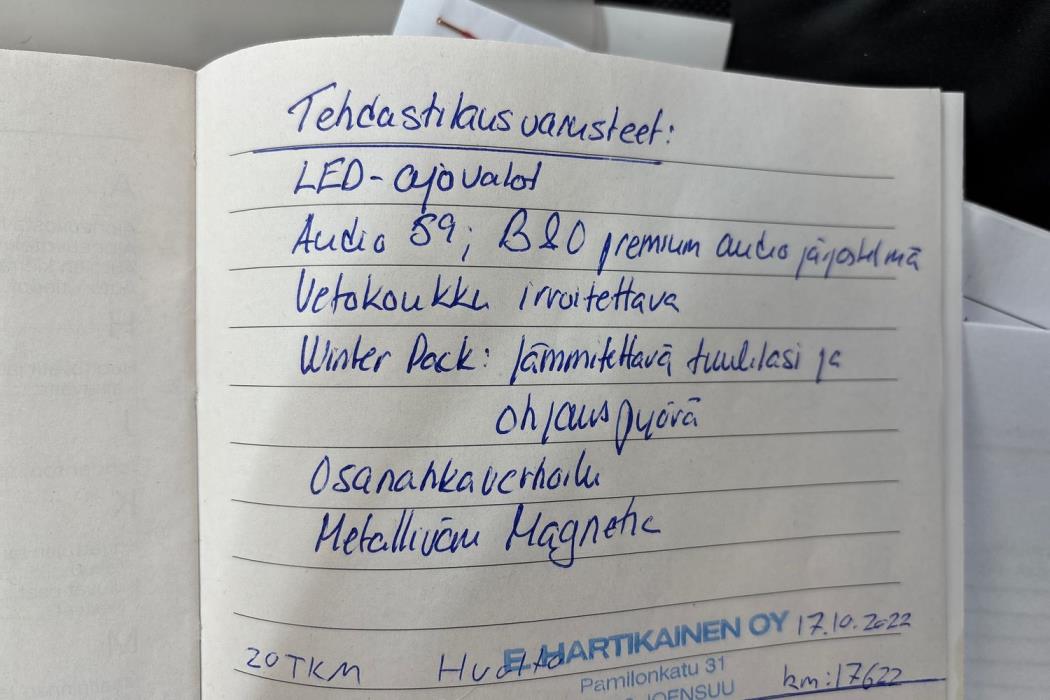 Tehdastilausvarusteet:
LED-ajovalot
Audio 59; B&O premium audio järjestelmä
Vetokoukku irroitettava
Winter Pack: Lämmitettävä tuulilasi ja
ohjauspyörä
Osanahkaverhoilu
Metalliväri Magnetic
E. HARTIKAINEN OY 17.10.2022
20TKM Huolto
Pamilonkatu 31
km: 17622
JOENSUU